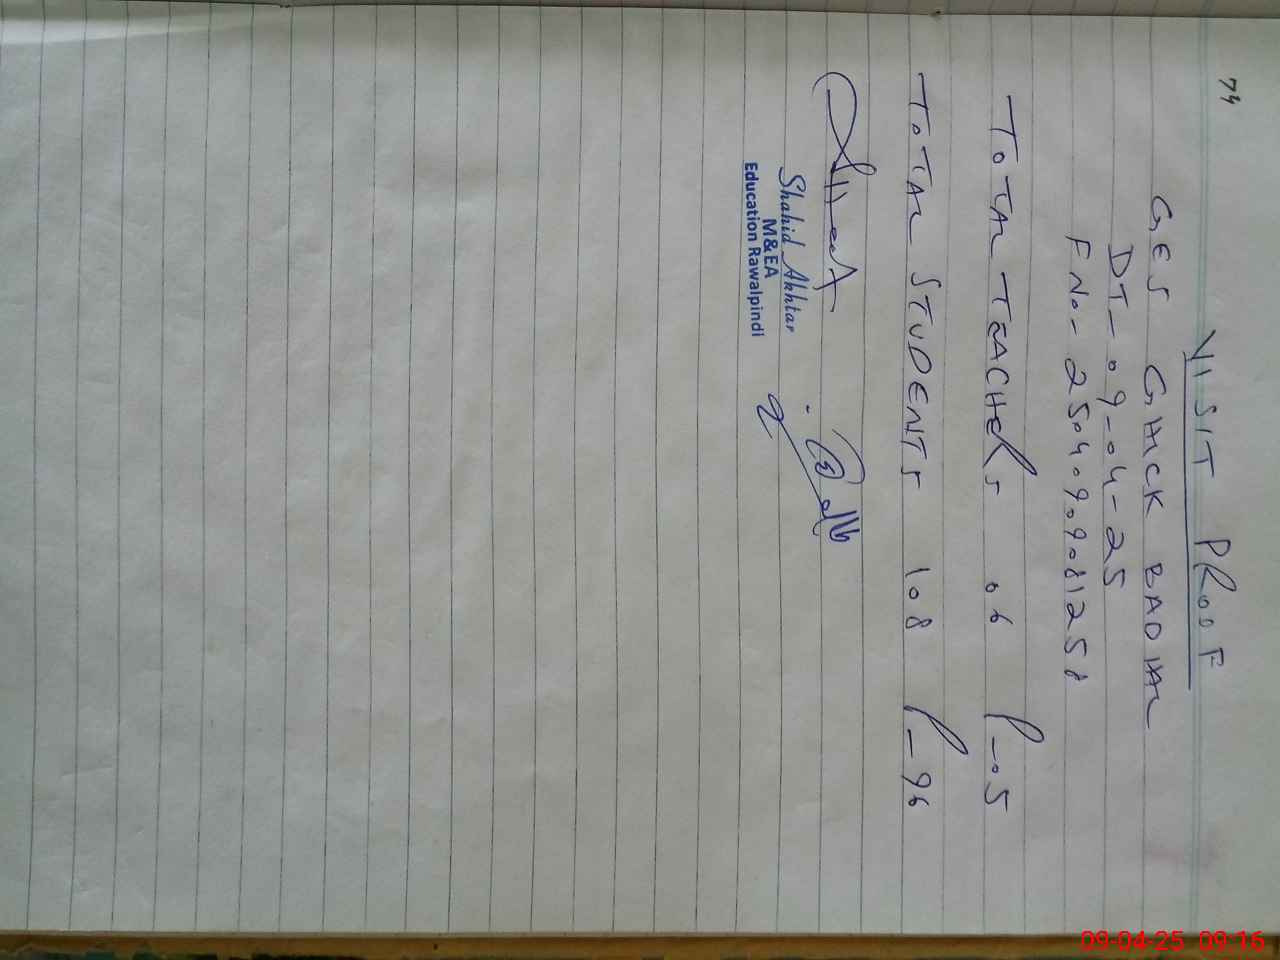 74
VISIT PROOF
GES CHICK BADHAL
DT-09-04-25
F No- 25040909081258
TOTAL TEACHERS 06 P-05
TOTAL STUDENTS 108 P-96
Shahid Akhtar
M&EA
Education Rawalpindi
09-04-25 09:16